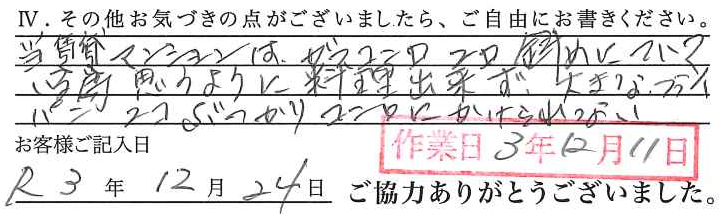 Ⅳ．その他お気づきの点がございましたら、ご自由にお書きください。
当賃貸マンションは、ガスコンロ コロ 斜めについて
思うように料理出来ず、大きなフライ
パン ココぶつかりコンロにかけられない
お客様ご記入日
作業日 3年12月11日
R3年12月24日 ご協力ありがとうございました。